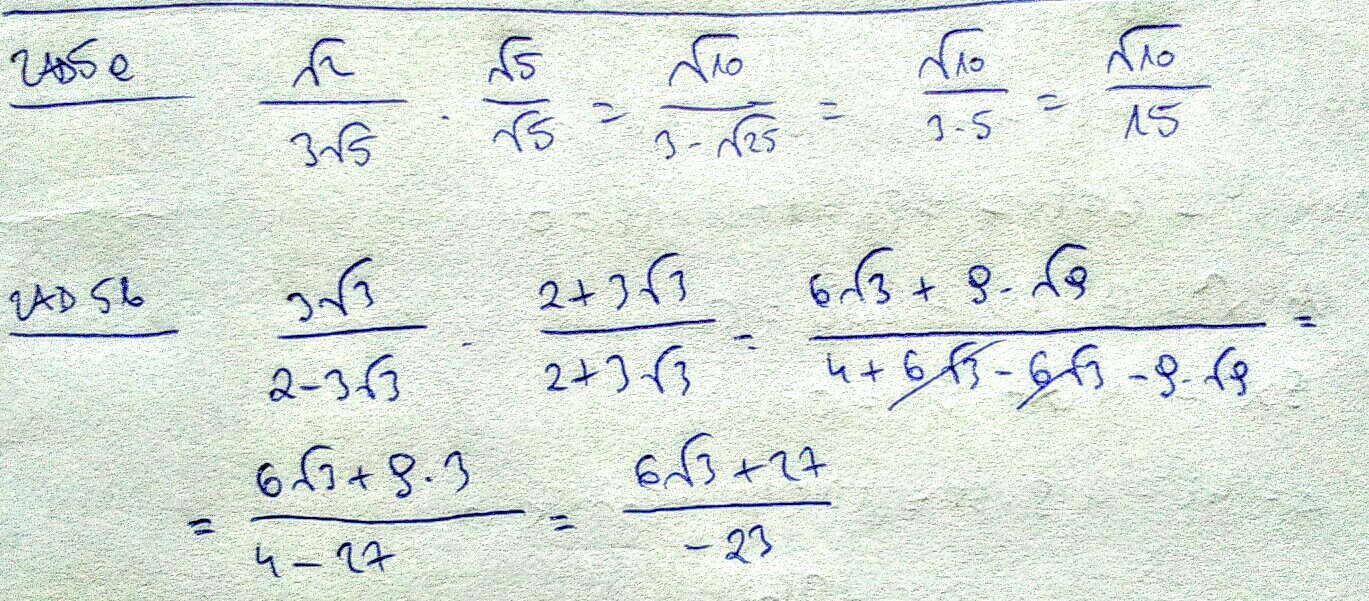 ZAD5a √2/3√5 · √5/√5 = √10/3·√25 = √10/3·5 = √10/15
ZAD5b 3√3/2-3√3 · 2+3√3/2+3√3 = 6√3+9·√9/4+6√3-6√3-9·√9 =
= 6√3+9·3/4-27 = 6√3+27/-23